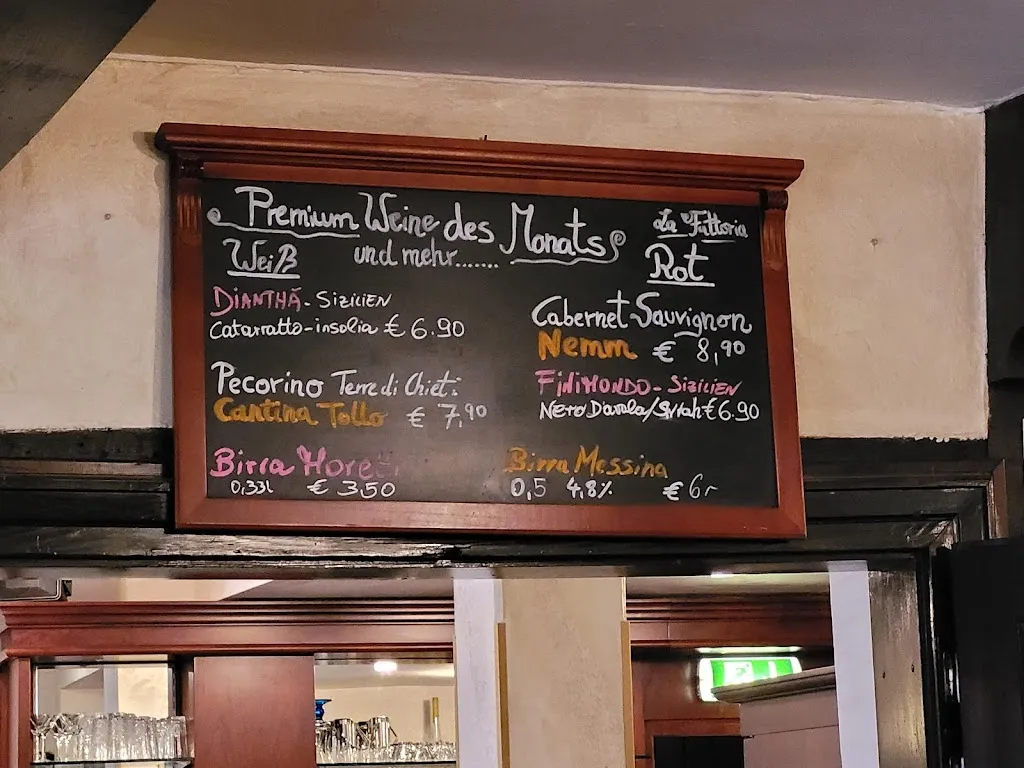 Premium Weine des Monats
und mehr.......
La Fattoria
Weiß
DIANTHÁ - SIZILIEN
Catarratto-insolia € 6.90
Pecorino Terre di Chieti
Cantina Tollo € 7,90
Birra
0,33l € 3,50
Rot
Cabernet-Sauvignon
Nemm € 8,90
FINIMONDO - SIZILIEN
Nero D'avola/Syrah € 6.90
Birra Messina
0,5 4,8% € 6,-